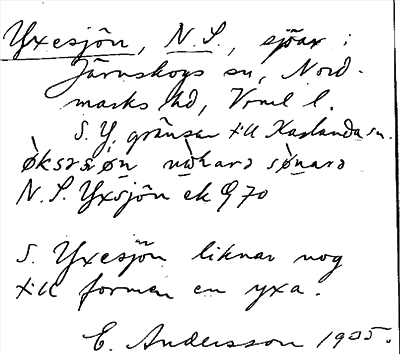 Yxesjön, N. S., sjöar i
Järnskogs sn, Nord-
marks hd, Vrml l.
S. Y. gränsar till Karlanda sn.
N. S. Yxsjön ek Q 70
S. Yxesjön liknar nog
till formen en yxa.
E. Andersson 1935.